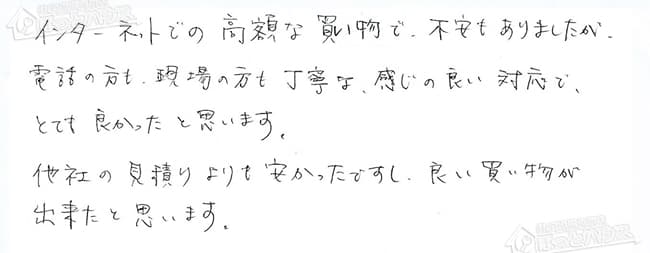 インターネットでの高額な買い物で、不安もありましたが、
電話の方も、現場の方も丁寧な、感じの良い対応で、
とても良かったと思います。
他社の見積りよりも安かったですし、良い買い物が
出来たと思います。